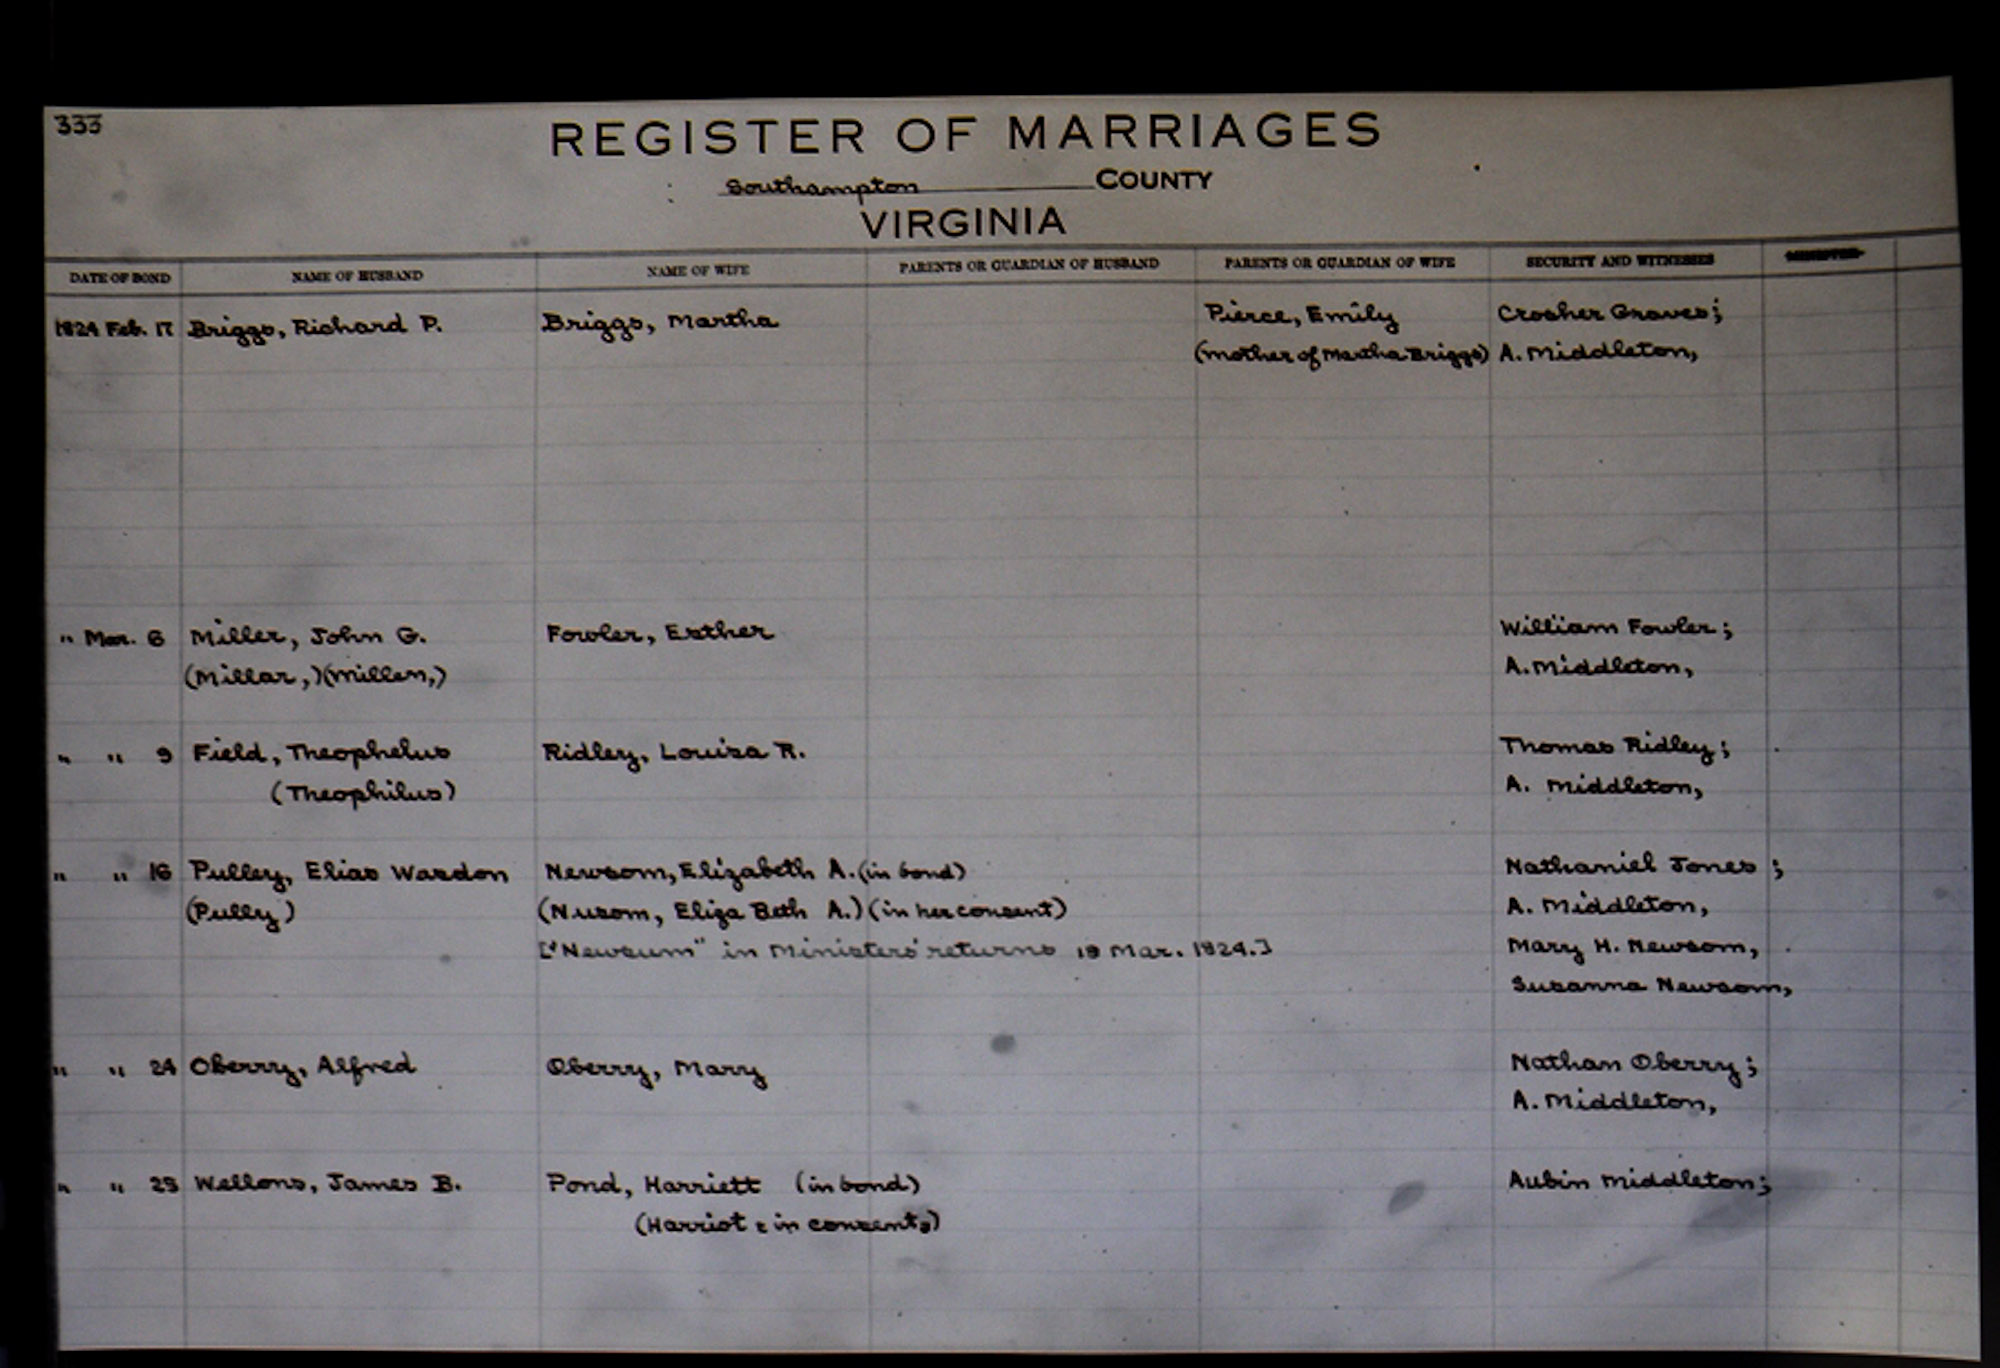 333
REGISTER OF MARRIAGES
Southampton COUNTY
VIRGINIA
DATE OF BOND NAME OF HUSBAND NAME OF WIFE PARENTS OR GUARDIAN OF HUSBAND PARENTS OR GUARDIAN OF WIFE SECURITY AND WITNESSES
1824 Feb. 17 Briggs, Richard P. Briggs, Martha Pierce, Emily Crosher Graves;
(mother of Martha Briggs) A. Middleton,
" Mar. 6 Miller, John G. Fowler, Esther William Fowler;
(Millar,)(Millen,) A. Middleton,
" " 9 Field, Theophelus Ridley, Louisa R. Thomas Ridley;
(Theophilus) A. Middleton,
" " 16 Pulley, Elias Wardon Newsom, Elizabeth A. (in bond) Nathaniel Jones;
(Pully) (Nusom, Eliza Beth A.) (in her consent) A. Middleton,
["Newsum" in Ministers' returns 19 Mar. 1824.] Mary H. Newsom,
Susanna Newsom,
" " 24 Oberry, Alfred Oberry, Mary Nathan Oberry;
A. Middleton,
" " 25 Wellons, James B. Pond, Harriett (in bond) Aubin Middleton;
(Harriot : in consents)